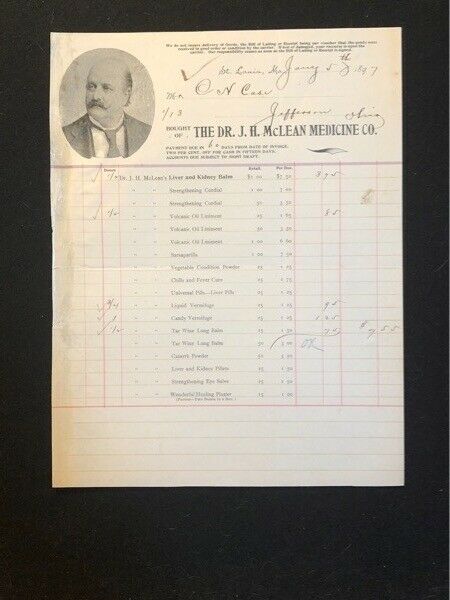 We do not insure delivery of Goods, the Bill of Lading or Receipt being our voucher that the goods were
received in good order or condition by the carrier. If lost or damaged, your recourse is upon the
carrier. Our responsibility ceases as soon as the Bill of Lading or Receipt is signed.
St. Louis, Mo., Jany 5th 1897
Mr O N Case
1/13 Jefferson Ohio
BOUGHT OF THE DR. J. H. McLEAN MEDICINE CO.
PAYMENT DUE IN 60 DAYS FROM DATE OF INVOICE.
TWO PER CENT. OFF FOR CASH IN FIFTEEN DAYS.
ACCOUNTS DUE SUBJECT TO SIGHT DRAFT.
Dozen Retail. Per Doz.
Dr. J. H. McLean's Liver and Kidney Balm $1 00 $7 50
" " Strengthening Cordial 1 00 7 00
" " Strengthening Cordial 50 3 50
1/2 " " Volcanic Oil Liniment 25 1 65 85
" " Volcanic Oil Liniment 50 3 50
" " Volcanic Oil Liniment 1 00 6 60
" " Sarsaparilla 1 00 7 50
" " Vegetable Condition Powder 25 1 25
" " Chills and Fever Cure 25 1 75
" " Universal Pills—Liver Pills 25 1 25
3/4 " " Liquid Vermifuge 25 95
1 " " Candy Vermifuge 25 1 25 1 25
1/2 " " Tar Wine Lung Balm 25 1 50 75 $7 55
" " Tar Wine Lung Balm 50 3 00 OK
" " Catarrh Powder 50 3 00
" " Liver and Kidney Pillets 25 1 50
" " Strengthening Eye Salve 25 1 50
" " Wonderful Healing Plaster 25 1 00